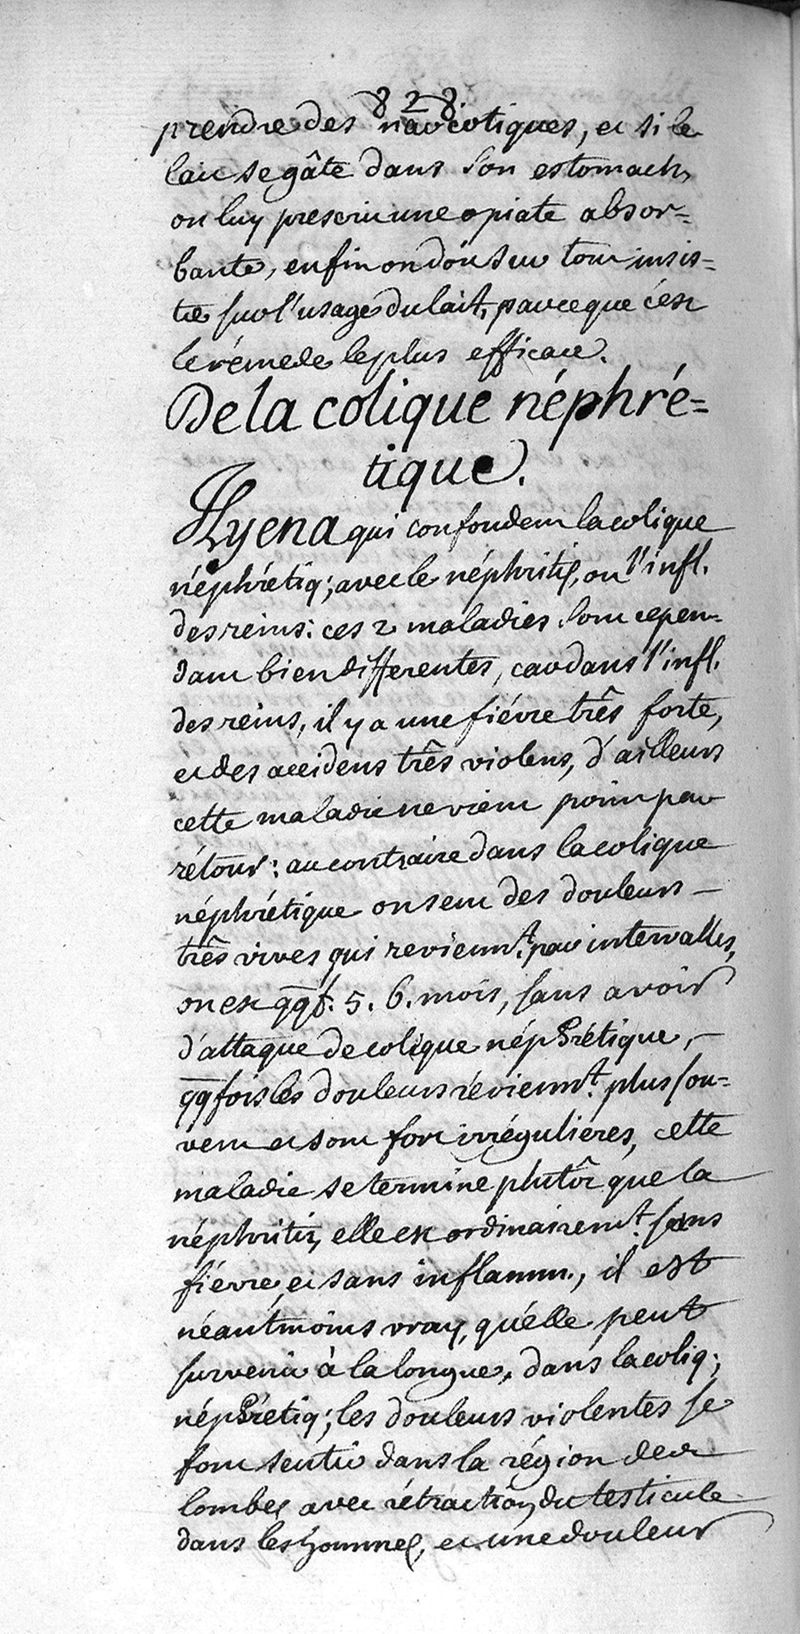 828
prendre des narcotiques, et si le
lait se gâte dans son estomach,
on luy prescrit une opiate absor=
bante, enfin on doit sur tout insis=
ter sur l'usage du lait, parceque c'est
le rémede le plus efficace.
De la colique néphré=
tique.
Il y en a qui confondent la colique
néphrétiq; avec le néphritis, ou l'infl.
des reins: ces 2 maladies sont cepen=
dant bien differentes, car dans l'infl.
des reins, il y a une fiévre três forte,
et des accidens três violens, d'ailleurs
cette maladie ne vient point par
rétour: au contraire dans la colique
néphrétique on sent des douleurs
três vives qui reviennt. par intervalles,
on est qqf. 5. 6. mois, sans avoir
d'attaque de colique néphrétique,
qqfois les douleurs réviennt. plus sou=
vent et sont fort irrégulieres, cette
maladie se termine plutôt que la
néphritis, elle est ordinairemt. sans
fiévre, et sans inflamm., il est
néantmoins vray, qu'elle peut
survenir à la longue, dans la coliq;
néphrétiq; les douleurs violentes se
font sentir dans la région des
lombes avec rétraction du testicule
dans les hommes, et une douleur